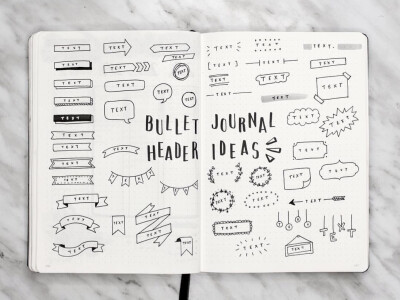 TEXT
TEXT
TEXT
TEXT
TEXT
TEXT
TEXT
TEXT
TEXT
TEXT
TEXT
TEXT
TEXT
TEXT
TEXT
TEXT
TEXT
TEXT
TEXT
TEXT
TEXT
TEXT
TEXT
TEXT
TEXT
TEXT
BULLET JOURNAL
HEADER IDEAS
TEXT
TEXT
TEXT
TEXT.
[TEXT]
TEXT
TEXT
TEXT
TEXT
TEXT
TEXT
TEXT
TEXT
TEXT
TEXT
TEXT
TEXT
TEXT
TEXT
TEXT
TEXT
TEXT
TEXT
TEXT
TEXT
TEXT